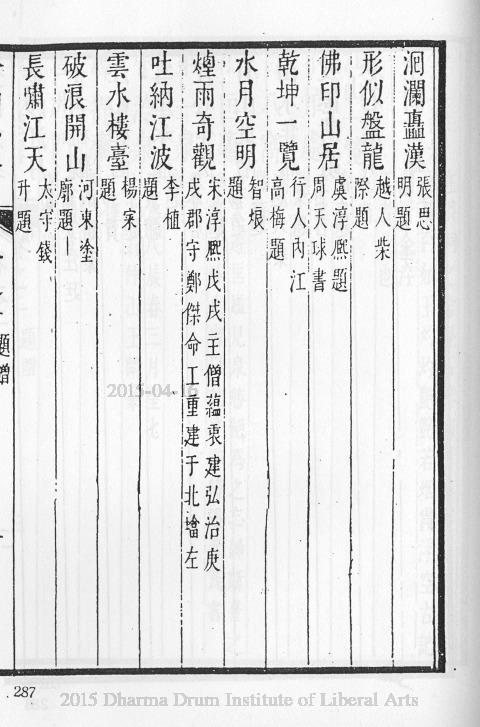 洄瀾矗漢 張思明題
形似盤龍 越人柴際題
佛印山居 虞淳熈題 周天球書
乾坤一覽 行人內江高梅題
水月空明 智垠題
煙雨奇觀 宋淳熈戊戌主僧蘊衷建弘治庚戌郡守鄭傑命工重建于北壋左
吐納江波 李植題
雲水樓臺 楊宋題
破浪開山 河東塗廓題
長嘯江天 太守錢升題
題 贈
2015-04-16
287
2015 Dharma Drum Institute of Liberal Arts